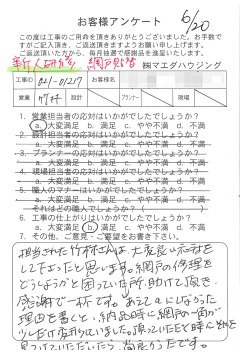 お客様アンケート
6/20
この度は工事のご用命を頂きありがとうございました。お手数で
すがご記入頂き、ご返送頂きますようお願い申し上げます。
ご返送頂いた方から、毎月抽選で感謝品を進呈いたします。
新人研修 網戸貼替 ㈱マエダハウジング
工事ID 021-01217 お客様名
営業 竹村 設計 プランナー 現場
1. 営業担当者の応対はいかがでしたでしょうか?
a. 大変満足 b. 満足 c. やや不満 d. 不満
2. 設計担当者の応対はいかがでしたでしょうか?
a. 大変満足 b. 満足 c. やや不満 d. 不満
3. プランナーの応対はいかがでしたでしょうか?
a. 大変満足 b. 満足 c. やや不満 d. 不満
4. 現場担当者の応対はいかがでしたでしょうか?
a. 大変満足 b. 満足 c. やや不満 d. 不満
5. 職人のマナーはいかがでしたでしょうか?
a. 大変満足 b. 満足 c. やや不満 d. 不満
それはどの職でしょうか?
6. 工事の仕上がりはいかがでしたでしょうか?
a. 大変満足 b. 満足 c. やや不満 d. 不満
7. その他、ご意見・ご要望をお書き下さい。
担当された竹村さんは、大変良い対応を
してくださったと思います。網戸の修理を
どうしようかと困っていた所、助けて頂き、
感謝で一杯です。あえてaにしなかった
理由を書くと、納品時に網戸の一角が
少しだけ